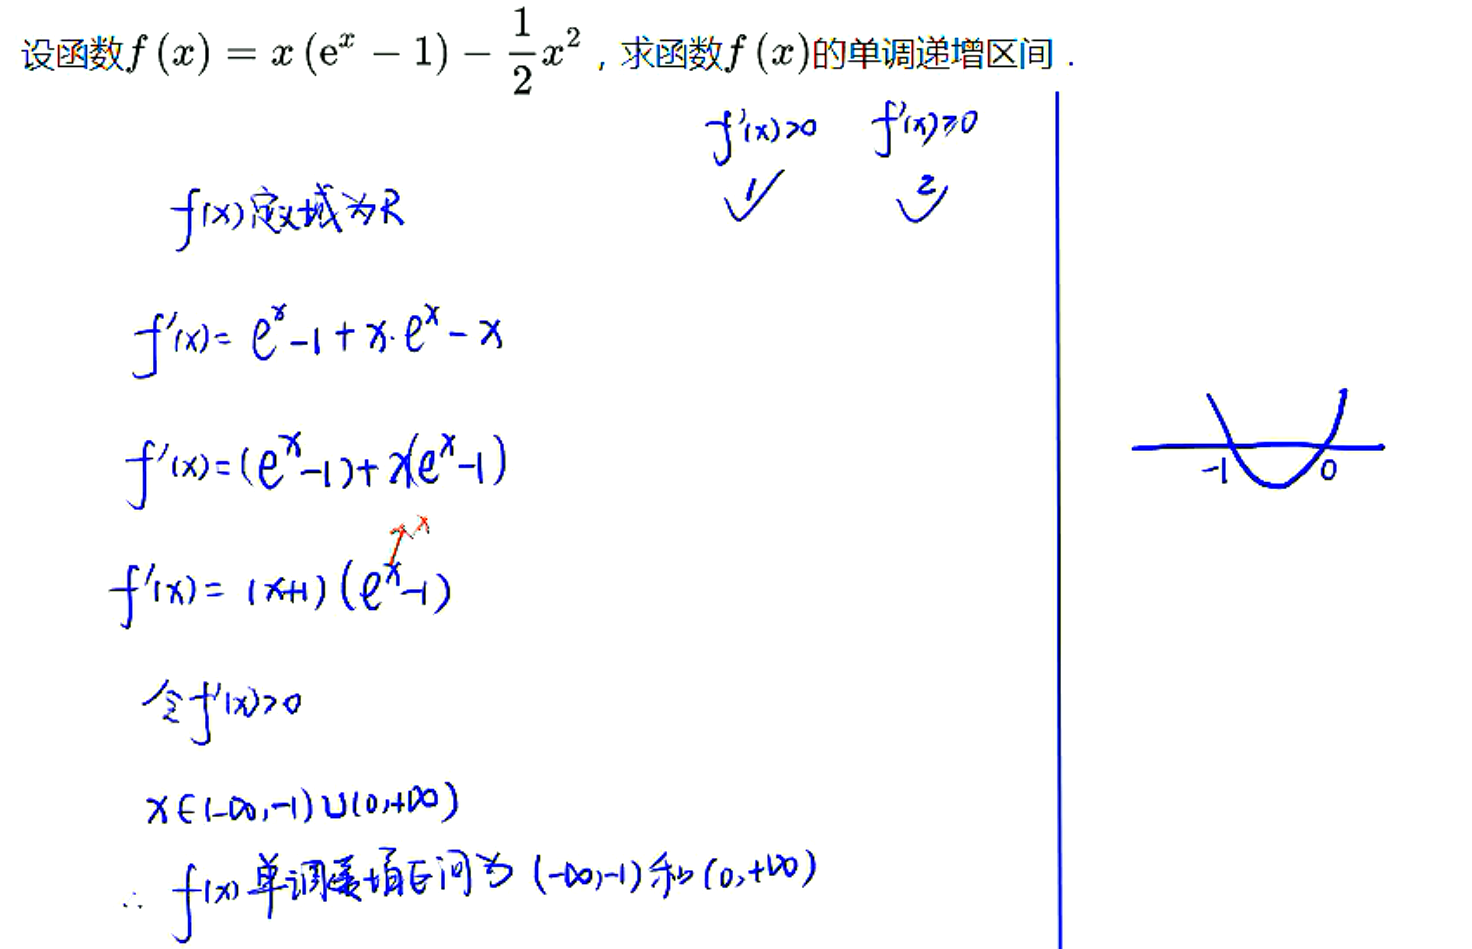 设函数f(x) = x(eˣ − 1) − 1/2 x²，求函数f(x)的单调递增区间．
f'(x)>0 f'(x)≥0
1 2
f(x)定义域为R
f'(x)= eˣ-1+x·eˣ-x
f'(x)=(eˣ-1)+x(eˣ-1)
x
f'(x)= (x+1)(eˣ-1)
-1 0
令f'(x)>0
x∈(-∞,-1)∪(0,+∞)
∴ f(x)单调递增区间为(-∞,-1)和(0,+∞)